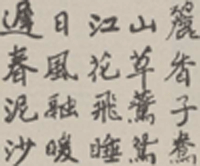 遲日江山麗
春風花草香
泥融飛鷰子
沙暖睡鴛鴦